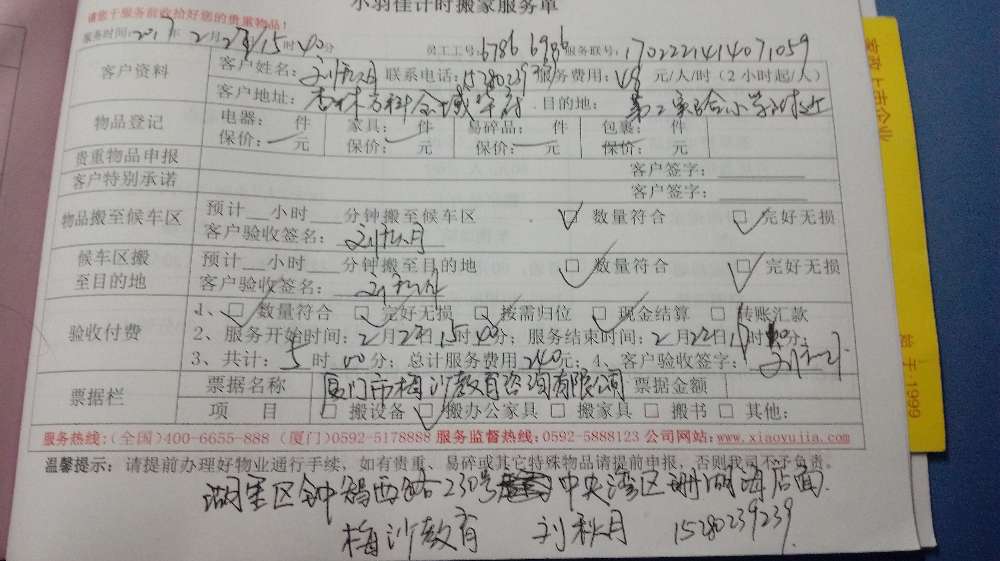 小羽佳计时搬家服务单
请您于服务前收拾好您的贵重物品!
服务时间:2017年2月22日15时40分 员工工号:6786 6986 服务联号:1702221414071059
客户资料 客户姓名:刘秋月 联系电话:15280239239 服务费用:48元/人/时(2小时起/人)
客户地址: 万科金域华府 目的地: 第二实验小学附近
物品登记 电器: 件 家具: 件 易碎品: 件 包裹: 件
保价: 元 保价: 元 保价: 元 保价: 元
贵重物品申报 客户签字:
客户特别承诺 客户签字:
物品搬至候车区 预计__小时__分钟搬至候车区 ☑数量符合 ☑完好无损
客户验收签名:刘秋月
候车区搬至目的地 预计__小时__分钟搬至目的地 ☑数量符合 ☑完好无损
客户验收签名:刘秋月
验收付费 1、☑数量符合 ☑完好无损 ☑按需归位 ☑现金结算 □转账汇款
2、服务开始时间:2月22日15时40分;服务结束时间:2月22日 时 分;
3、共计:5时00分;总计服务费用240元;4、客户验收签字:刘秋月
票据栏 票据名称 厦门市梅沙教育咨询有限公司 票据金额
项 目 □搬设备 ☑搬办公家具 □搬家具 □搬书 □其他:
服务热线:(全国)400-6655-888 (厦门)0592-5178888 服务监督热线:0592-5888123 公司网站:www.xiaoyujia.com
温馨提示: 请提前办理好物业通行手续,如有贵重、易碎或其它特殊物品请提前申报,否则我司不予负责。
湖里区钟 西路230号 中央湾区珊瑚海店面.
梅沙教育 刘秋月 15280239239.
家政上市企业
始于·1999